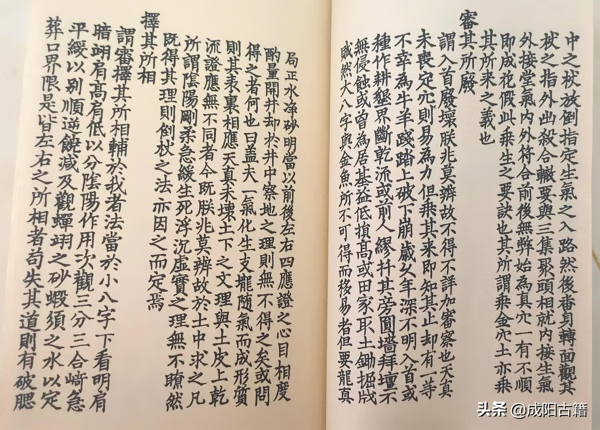 中之杖放倒指定生氣之入路然後番身轉面觀其
杖之指外出殺合轍要與三集聚頭相就內接生氣
外接堂氣內外符合前後無弊始為真穴一有不順
即成花假此乘生之要訣也其所謂乘金穴土亦乘
其所來之義也
審其所廢
謂入首廢壞朕兆莫辨故不得不詳加審察也夫真
未喪定穴則易為力但乘其來即知其止却有一等
不幸為牛羊踐踏上破下崩歲久年深不明入首或
種作耕墾界斷乾流或前人謬扦其旁圓墻拜壇不
無侵蝕或曽為居基益低損高或田家取土鋤掘戕
賊然大八字與金魚所不可得而移易者但要龍真
局正水净砂明當以前後左右四應證之心目相度
酌量開井却於井中察地之理則無不得之矣或問
得之者何也曰盖夫一氣化生支龍隨氣而成形質
則其表裏相應天真未壊土下之文理與土皮上乾
流證應無不同者今既朕兆莫辨故於土中求之凡
所謂陰陽剛柔急緩生死浮沉虛實之理無不瞭然
既得其理則倒杖之法亦因之而定焉
擇其所相
謂審擇其所相輔於我者法當於小八字下看明肩
暗翊有髙有低以分陰陽作用次觀三分三合﨑急
平緩以别順逆饒減及觀蟬翊之砂蝦須之水以定
葬口界限是皆左右之所相者苟失其道則有破腮
头条 @成阳古籍